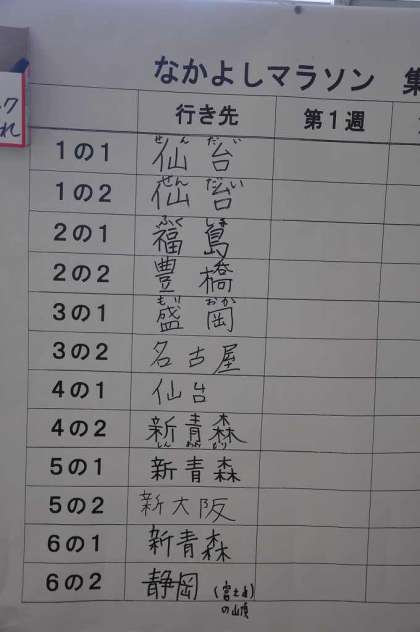 なかよしマラソン 集
ク
れ
行き先 第1週
1の1 仙台 せんだい
1の2 仙台 せんだい
2の1 福島 ふくしま
2の2 豊橋
3の1 盛岡 もりおか
3の2 名古屋
4の1 仙台
4の2 新青森 しんあおもり
5の1 新青森
5の2 新大阪
6の1 新青森
6の2 静岡 (富士山
の山頂)